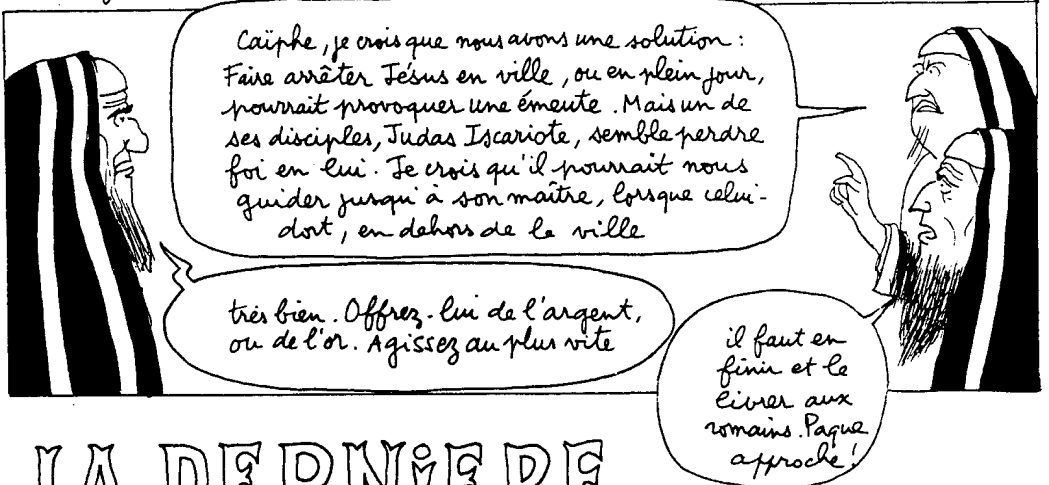 Caïphe, je crois que nous avons une solution :
Faire arrêter Jésus en ville, ou en plein jour,
pourrait provoquer une émeute. Mais un de
ses disciples, Judas Iscariote, semble perdre
foi en lui. Je crois qu'il pourrait nous
guider jusqu'à son maître, lorsque celui-
dort, en dehors de la ville
très bien. Offrez-lui de l'argent,
ou de l'or. Agissez au plus vite
il faut en
finir et le
livrer aux
romains. Paque
approche !
LA DERNIERE